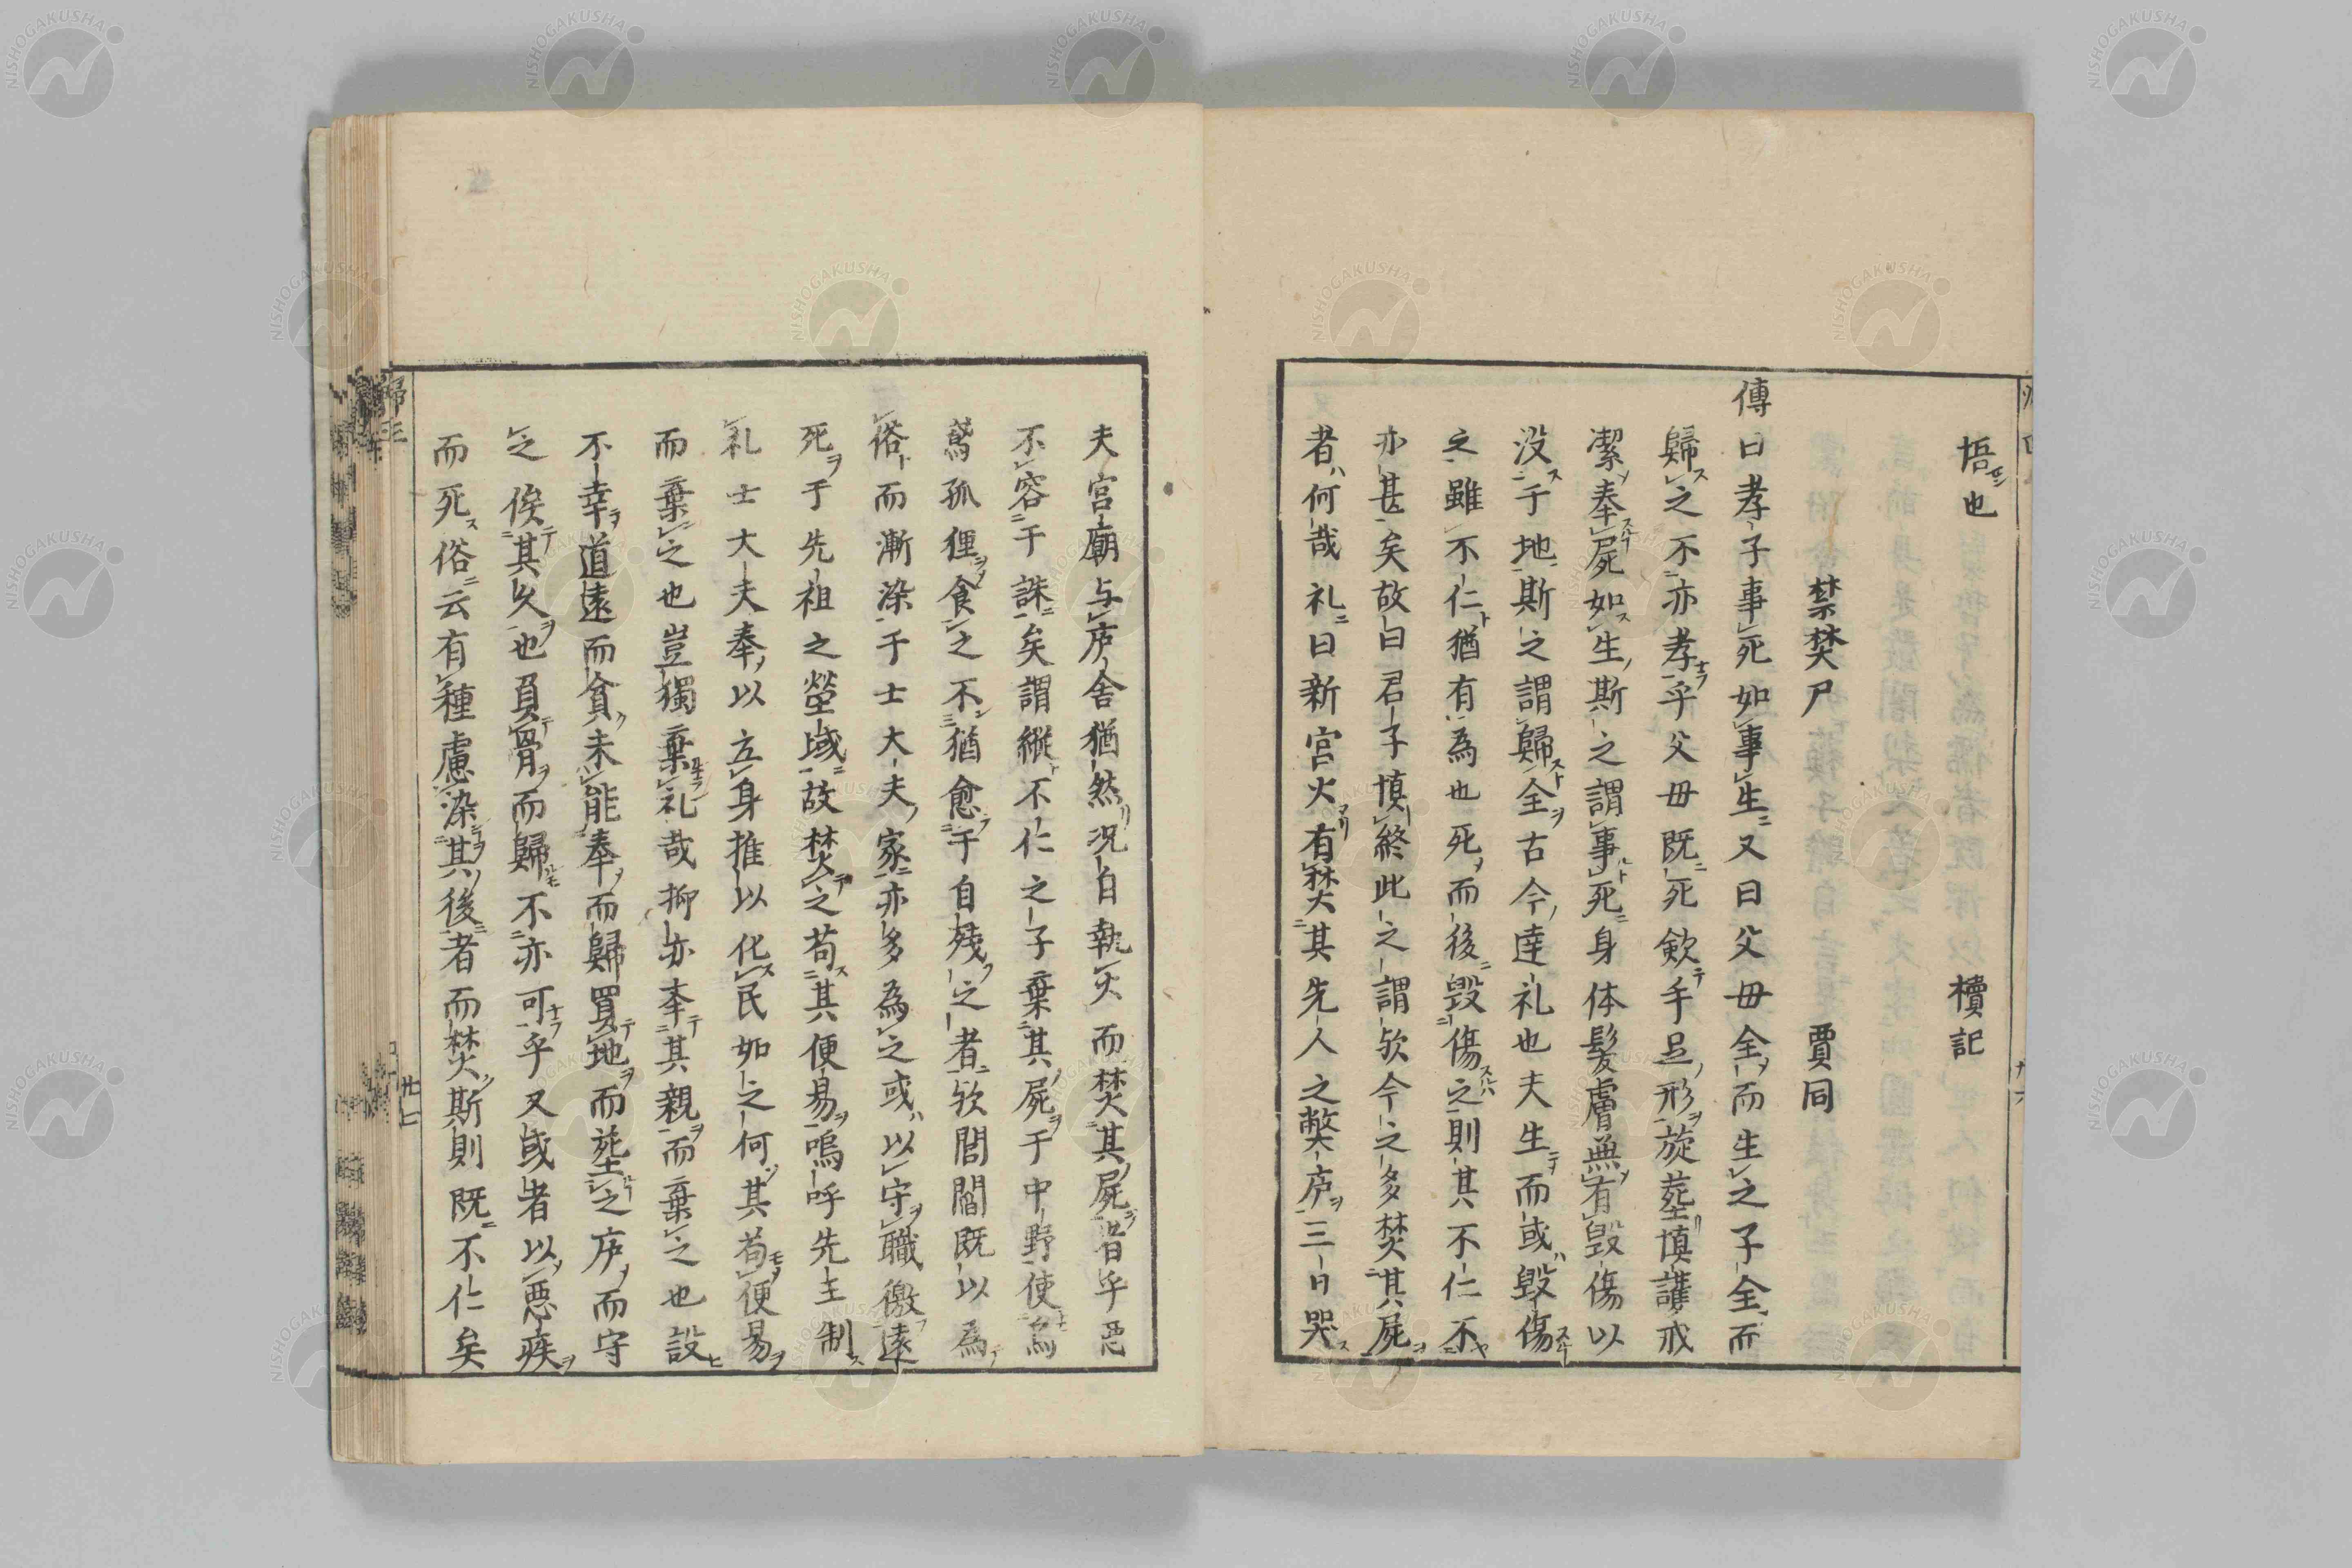 悟也　　　　　　　　　　櫝記
禁焚尸　　　　　　賈同
傳曰孝子事死如事生又曰父母全而生之子全而
歸之不亦孝乎父母既死歛手足形旋葬慎護戒
潔奉屍如生斯之謂事死身体髮膚無有毀傷以
没于地斯之謂歸全古今達礼也夫生而或毀傷
之雖不仁猶有為也死而後毀傷之則其不仁不
亦甚矣故曰君子慎終此之謂欤今之多焚其屍
者何哉礼曰新宮火有焚其先人之弊庐三日哭
夫宮廟与庐舍猶然況自執火而焚其屍者乎惡
不容于誅矣謂縱不仁之子棄其屍于中野使烏
鳶狐狸食之不猶愈于自殘之者欤閭閻既以為
俗而漸染于士大夫家亦多為之或以守職徼遠
死于先祖之塋域故焚之苟其便易嗚呼先王制
礼士大夫奉以立身推以化民如之何其苟便易
而棄之也豈獨棄礼哉抑亦奉其親而棄之也設
不幸道遠而貧未能奉而歸買地而葬之庐而守
之俟其久也負骨而歸不亦可乎又或者以惡疾
而死俗云有種慮染其後者而焚斯則既不仁矣
歸三
廿七
NISHOGAKUSHA